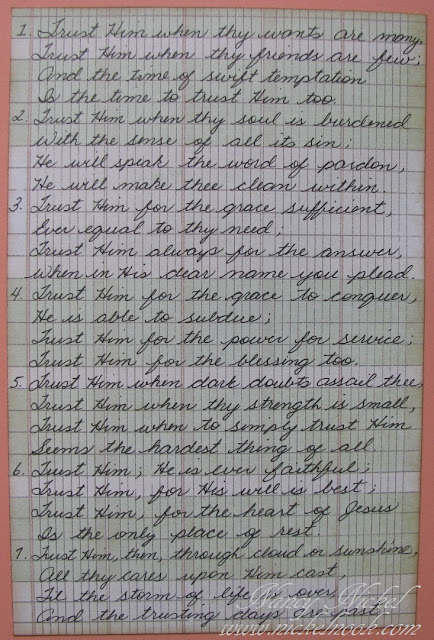 1. Trust Him when thy wants are many,
Trust Him when thy friends are few;
And the time of swift temptation
Is the time to trust Him too.
2. Trust Him when thy soul is burdened
With the sense of all its sin;
He will speak the word of pardon,
He will make thee clean within.
3. Trust Him for the grace sufficient,
Ever equal to thy need;
Trust Him always for the answer,
When in His dear name you plead.
4. Trust Him for the grace to conquer,
He is able to subdue;
Trust Him for the power for service;
Trust Him for the blessing too.
5. Trust Him when dark doubts assail thee,
Trust Him when thy strength is small,
Trust Him when to simply trust Him
Seems the hardest thing of all
6. Trust Him; He is ever faithful;
Trust Him, for His will is best;
Trust Him, for the heart of Jesus
Is the only place of rest.
7. Trust Him, then, through cloud or sunshine,
All thy cares upon Him cast,
Til the storm of life is over
And the trusting days are past.
Nickel
www.nickelnook.com